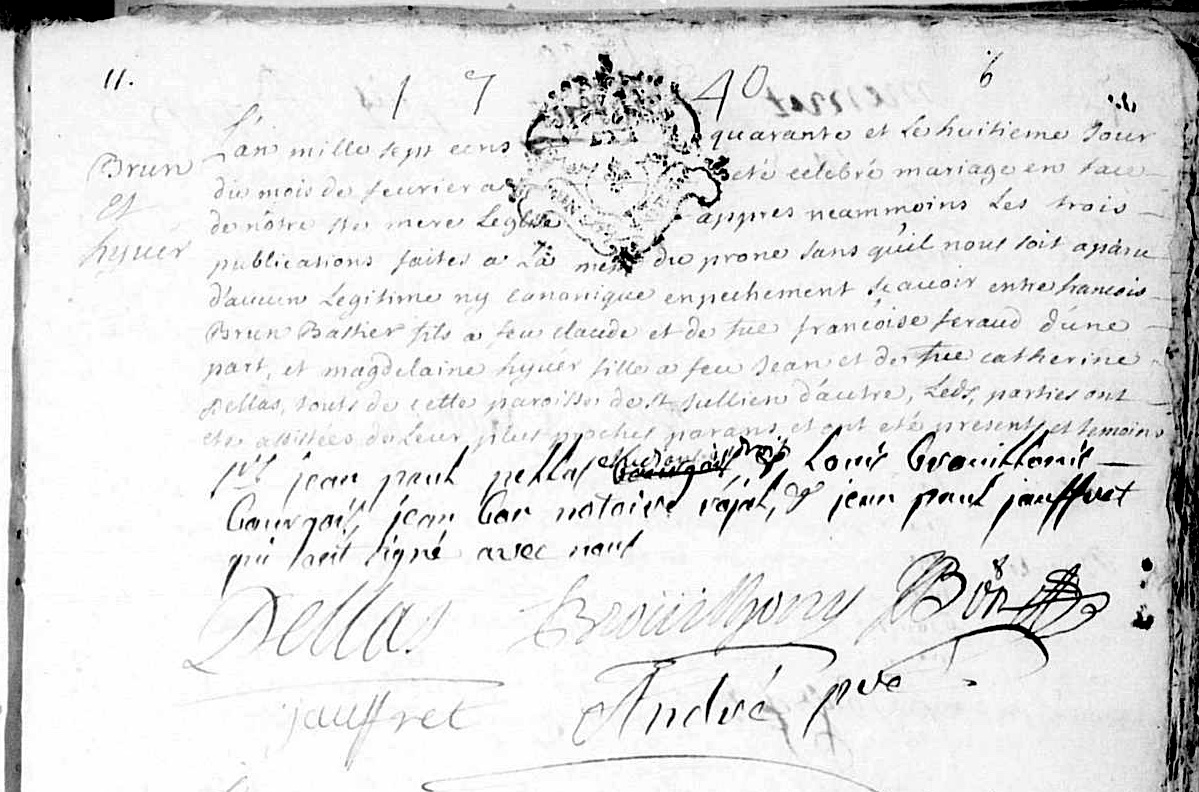 11. 1740 6
Brun
et
hyuer
L'an mille sept cens quarante et Le huitieme Jour
du mois de feurier a eté celebré mariage en face
de nôtre ste mere Leglise appres neammoins Les trois
publications faites a La messe du prone sans qu'il nous soit aparu
d'aucun Legitime ny canonique enpechement sçauoir entre francois
Brun Bastier fils a feu claude et de fue françoise feraud d'une
part, et magdelaine hyuer fille a feu Jean et de fue catherine
Dellas, touts de cette paroisse de st Jullien d'autre, Leds, parties ont
ete assistées de Leur plus proches parans et ont eté present et temoins
jean paul pellas Louis Brouillonis
bourgois, jean notoire & jean paul jauffret
qui sont signé avec nous
Dellas Broüilhony
jauffret André pre